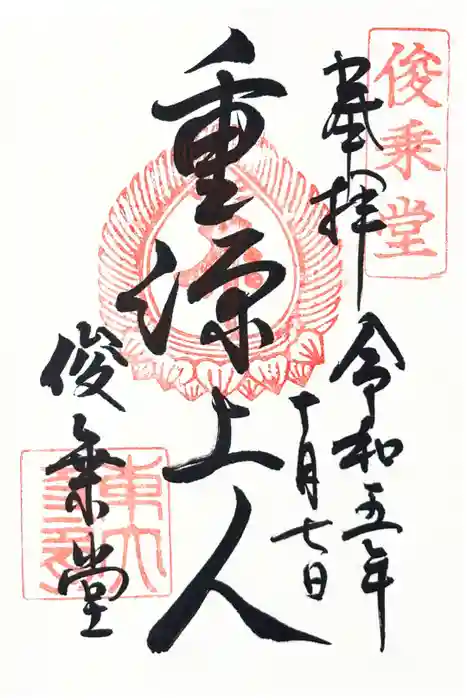 俊乗堂
奉拝
令和五年
十月七日
重源上人
俊乗堂